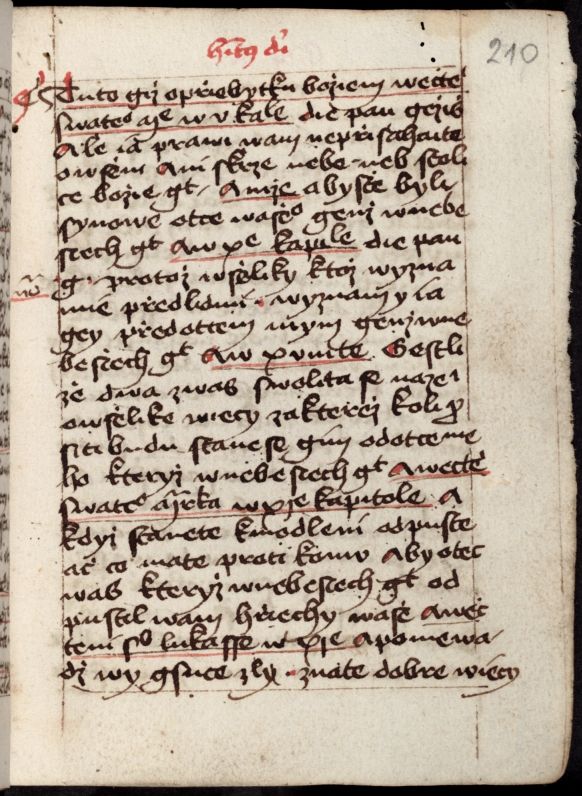 210
Tuto giz oprziebytku boziem wecte
swateo aze w v kale die pan gezis
Ale ia prawi wam neprisahaite
owsem Ani skrze nebe neb stoli
ce bozie gt A nize abyste byli
synowe otce waseo genz wnebe
siech gt Aw xe kapile die pan
g protoz wseliky ktoz wyzna
mie predlidmi wyznam y ia
gey predottem mym genz wne
besiech gt Aw Gestli
ze dwa zwas swolita se naze
owselike wiecy zakterez koli
siti budu stanese gim odotceme
ho kteryz wnebesiech gt Awecte
swateo kapitole A
kdyz stanete kmodleni odpuste
ac co mate proti komu Aby otec
was kteryz wnebesiech gt od
pustil wam hriechy wase Awec
teni lukasse w Aponewa
dz wy gsuce zly znate dobre wiecy